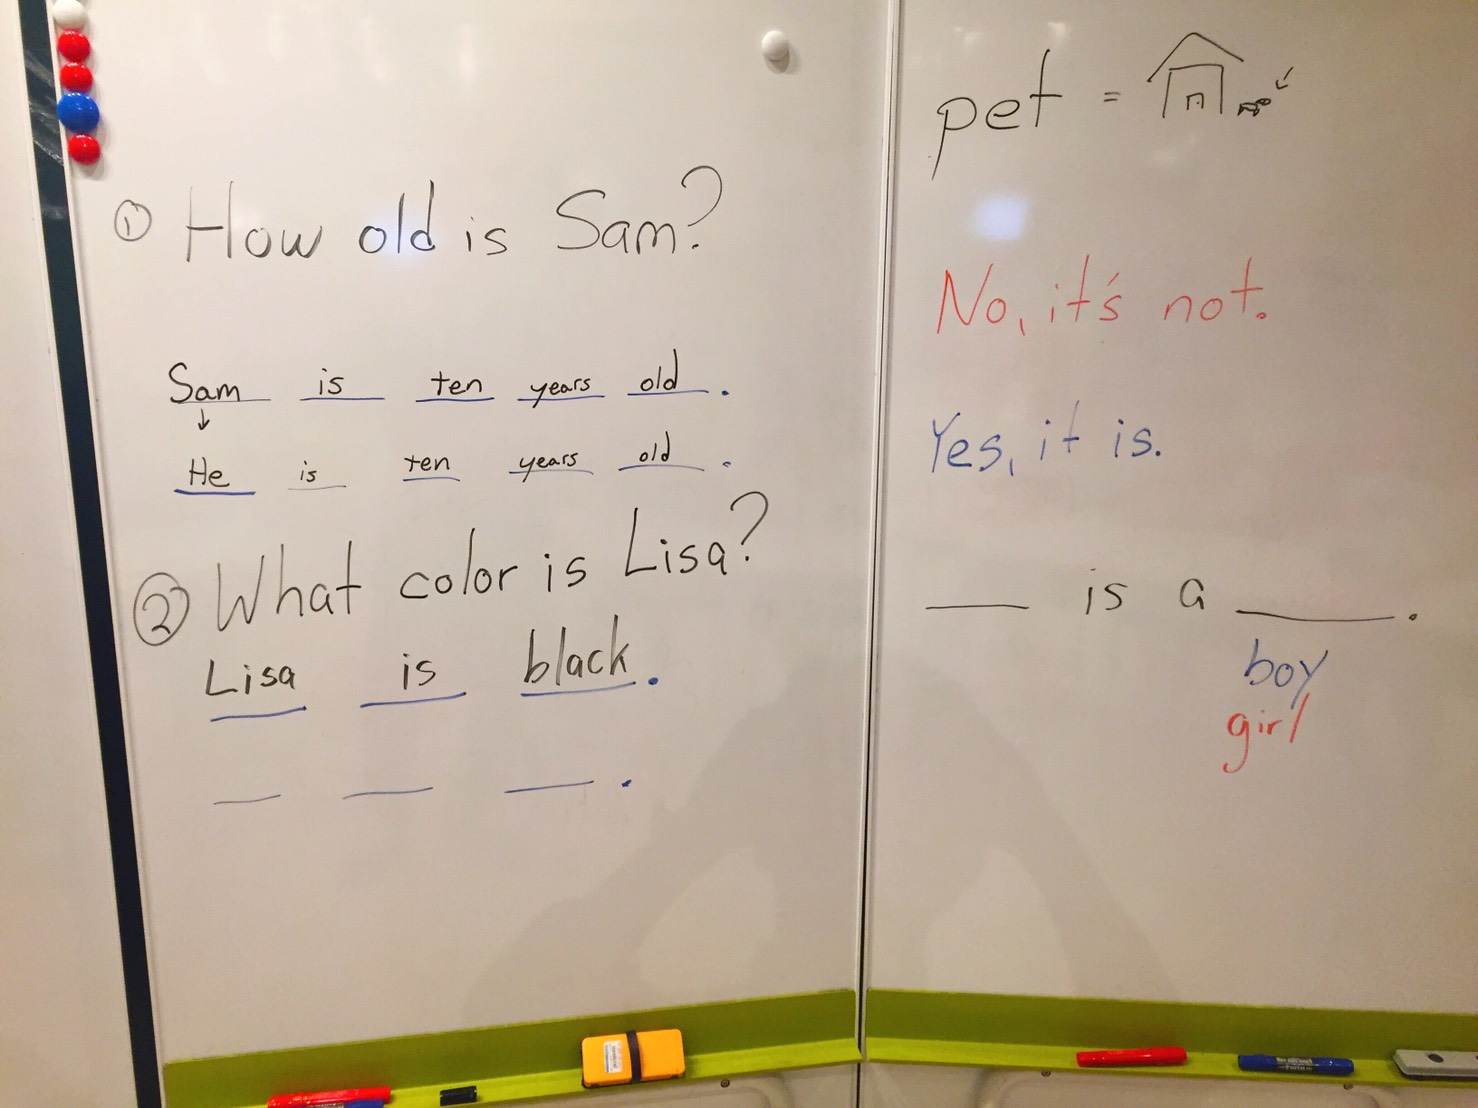 ① How old is Sam?
Sam is ten years old.
↓
He is ten years old.
② What color is Lisa?
Lisa is black.
___ ___ ___.
pet =
No, it's not.
Yes, it is.
___ is a ___.
boy
girl